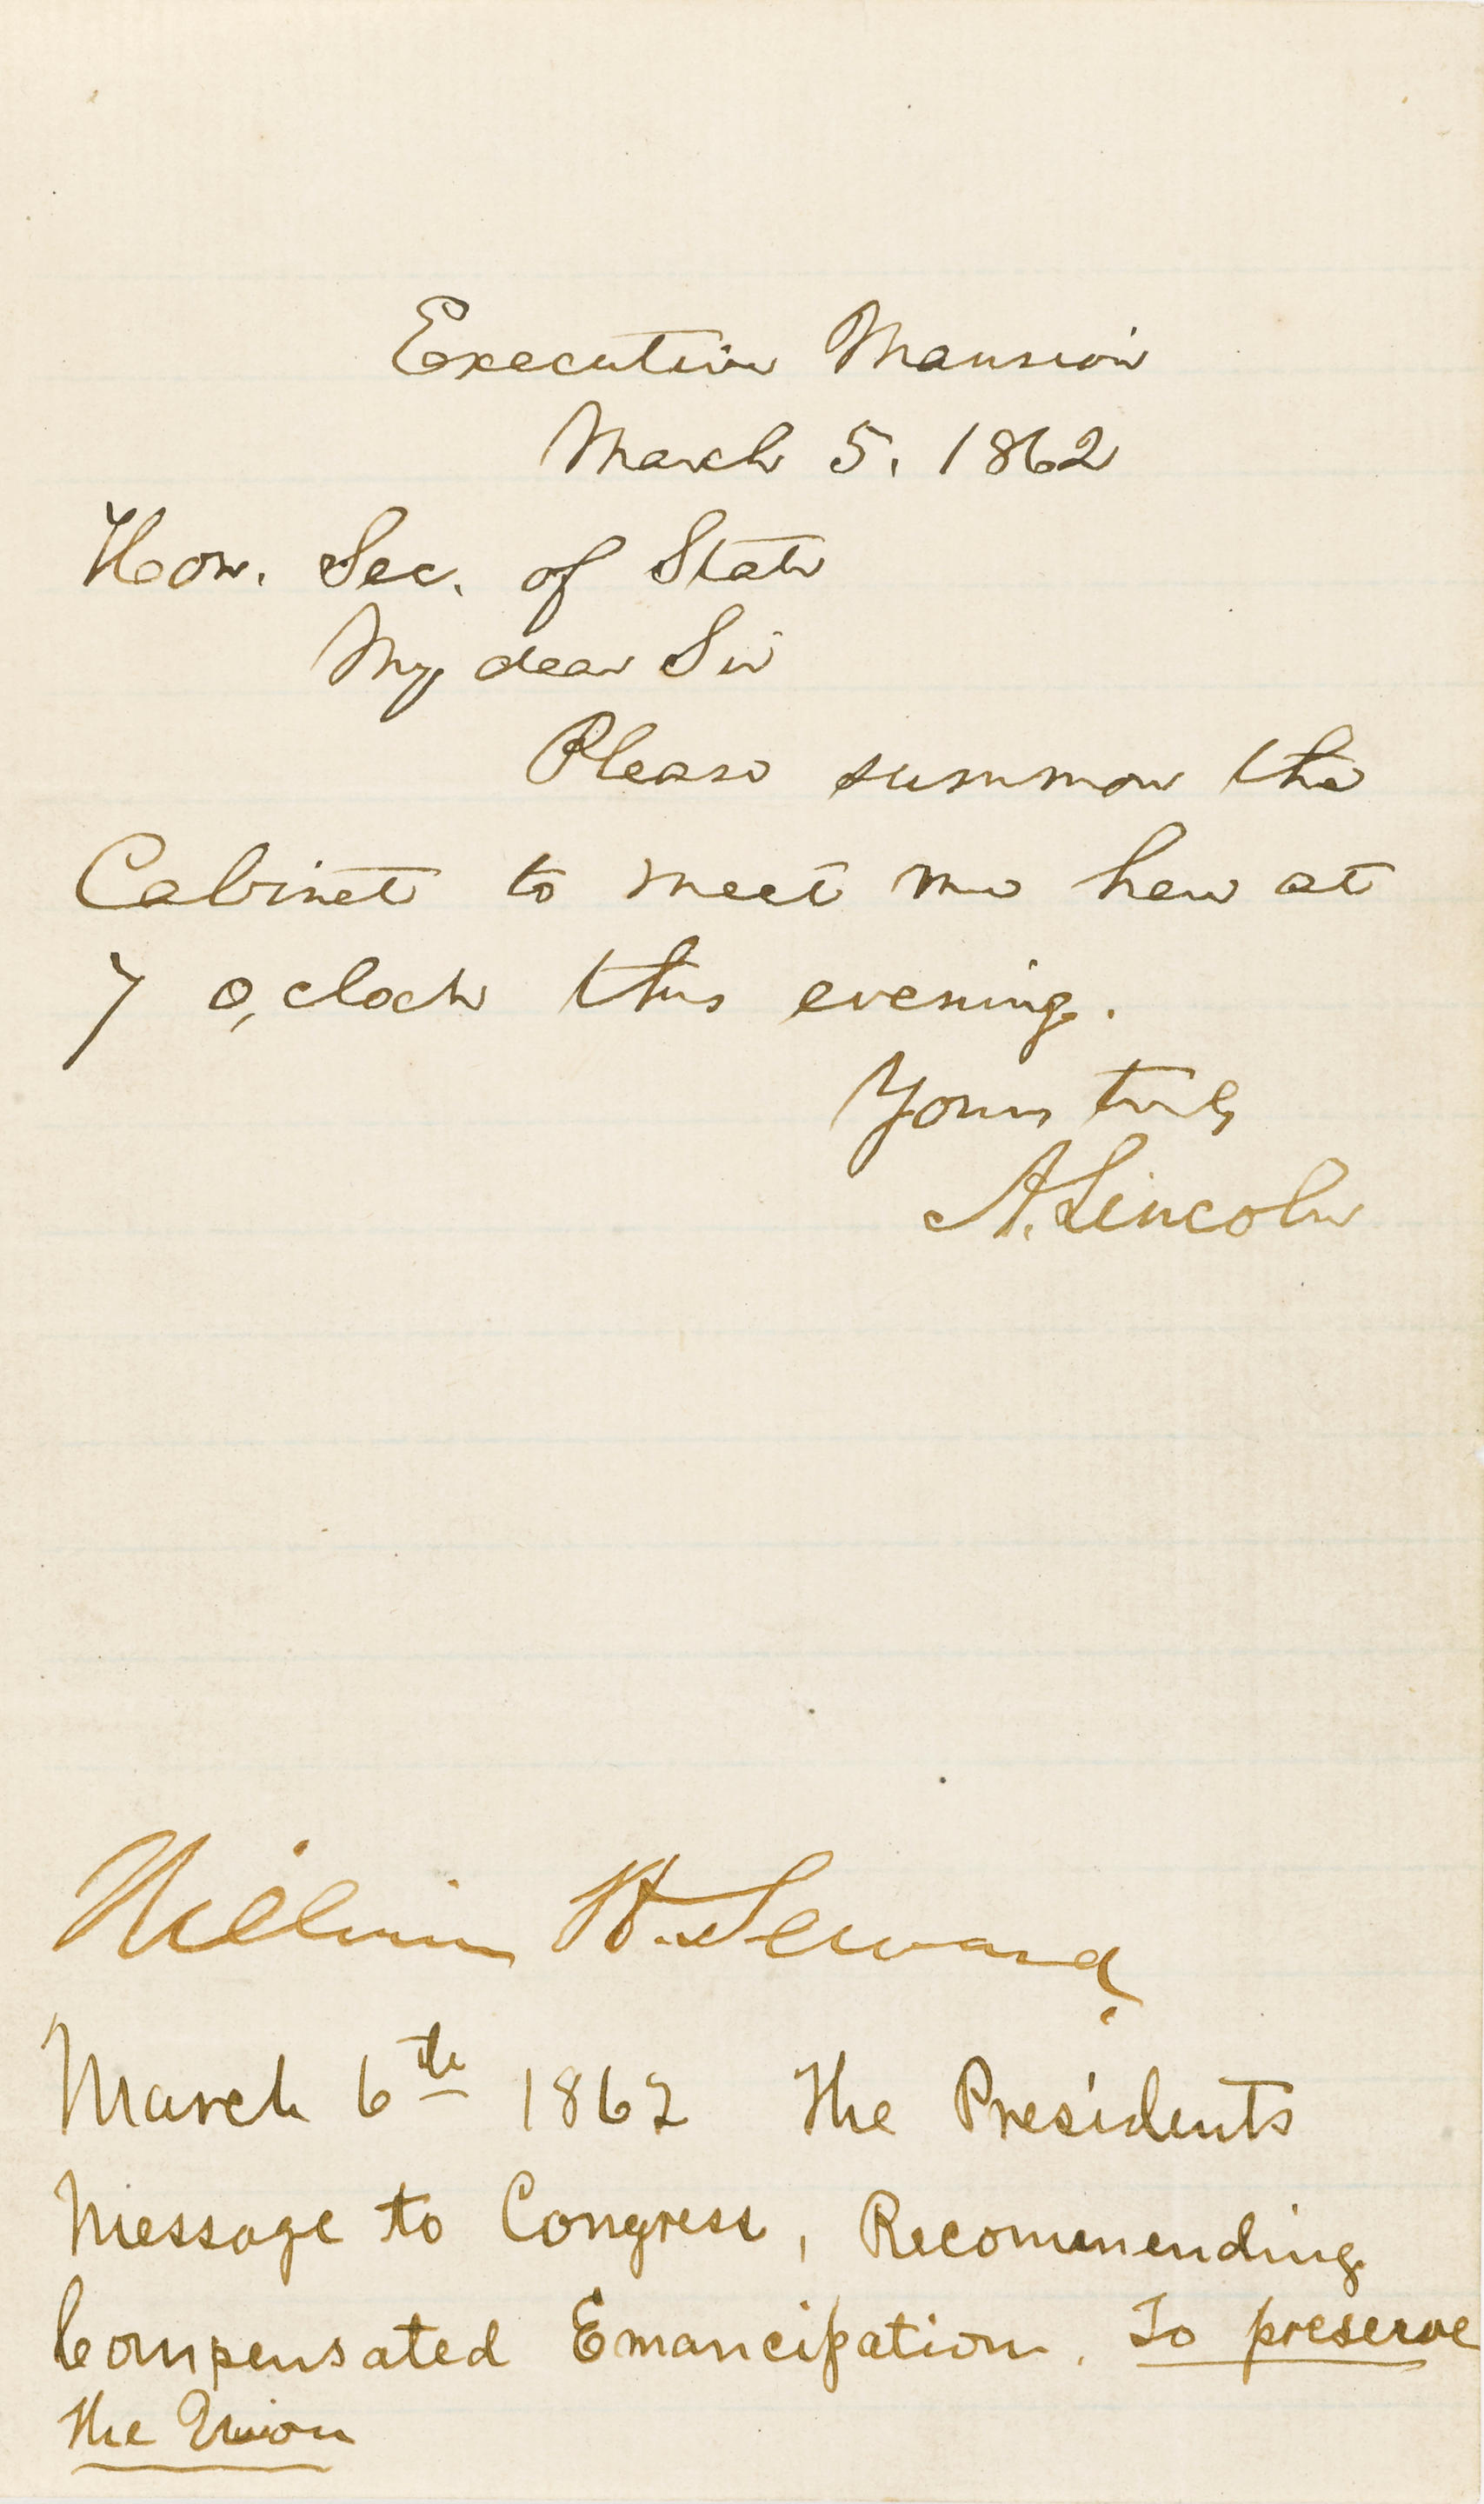 Executive Mansion
March 5, 1862
Hon. Sec. of State
My dear Sir
Please summon the
Cabinet to meet me here at
7 o,clock this evening.
Yours truly
A. Lincoln
William H. Seward
March 6th 1862 The Presidents
Message to Congress, Recommending
Compensated Emancipation. To preserve
the Union